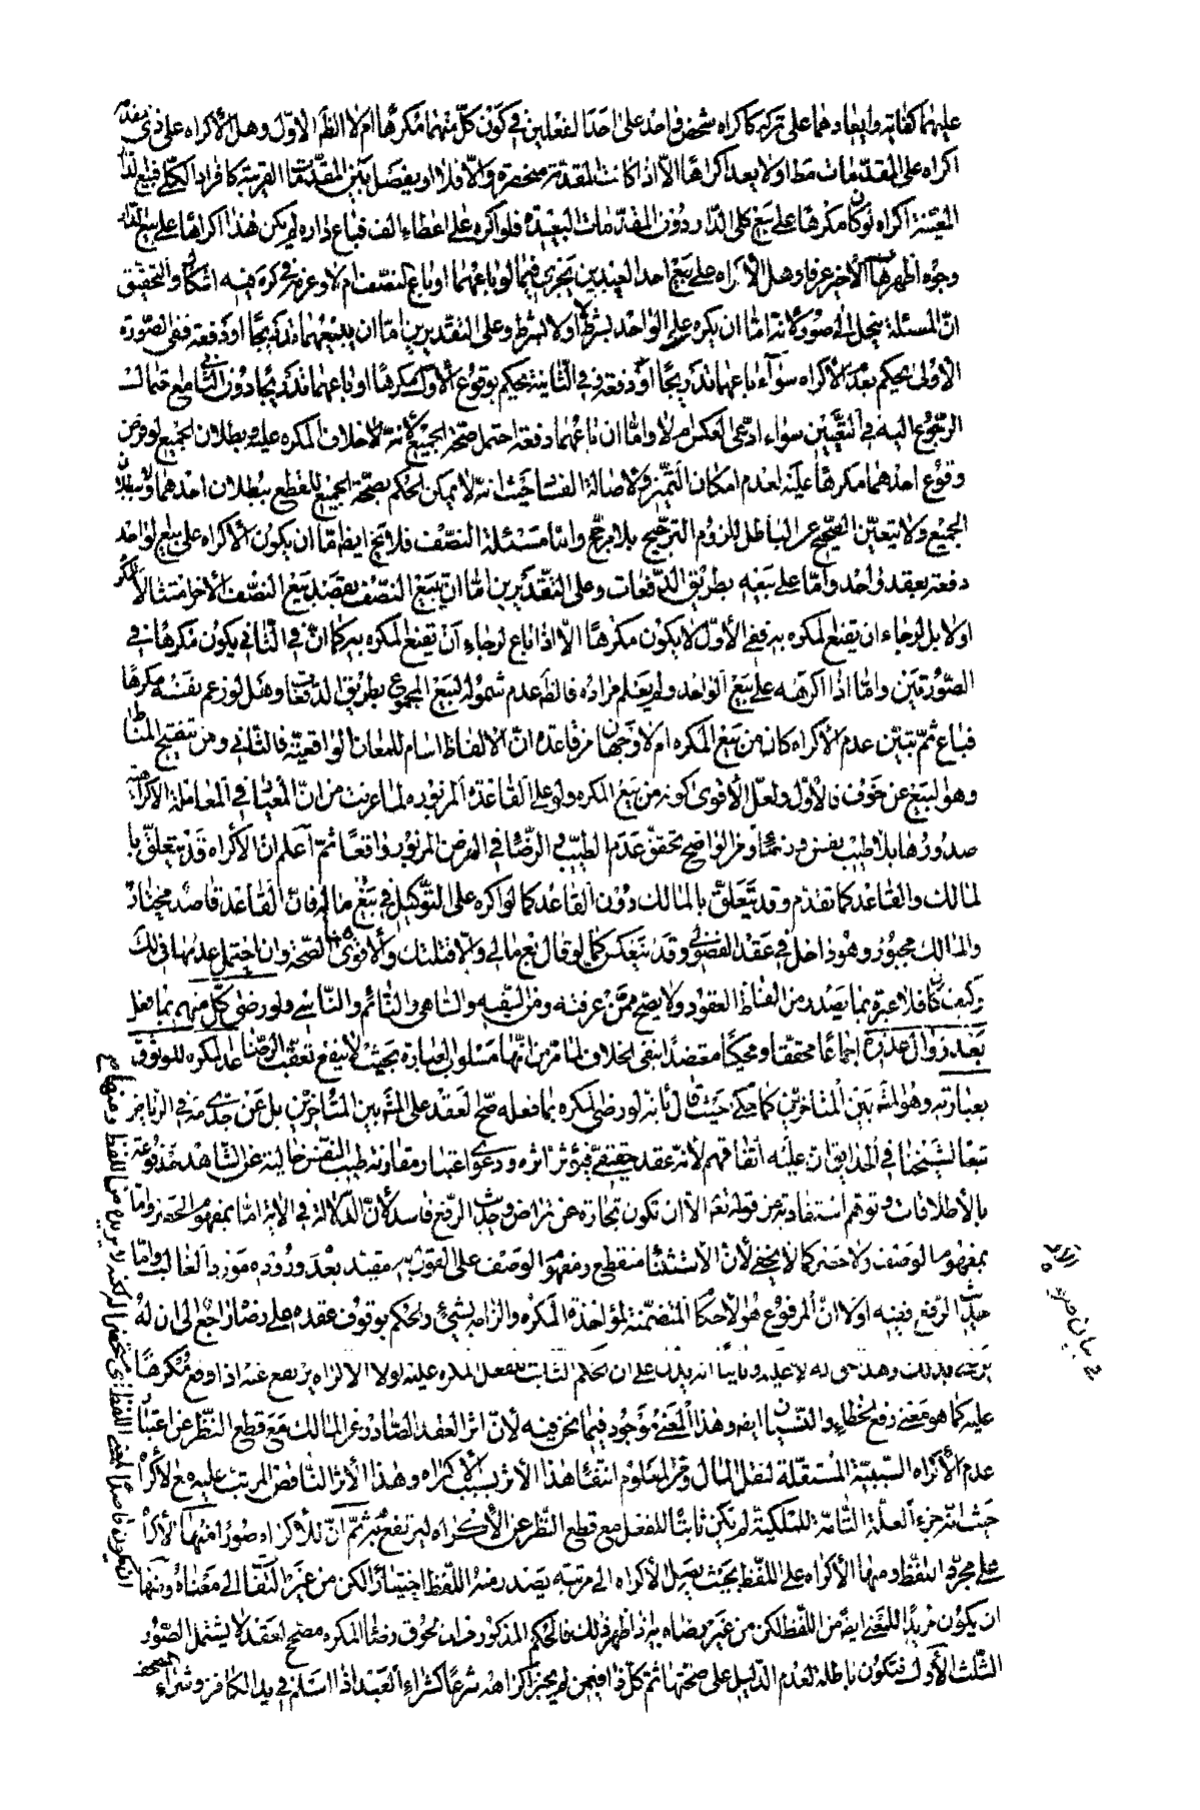 عليهما كفاية وايجادهما على تركه كاكراه شخص واحد على احد الفعلين في كون كلّ منهما مكرها ام لا الظّ الاوّل وهل الاكراه على ذى مقدّمة
اكراه على المقدّمات مط اولا يعد اكراها الاّ اذا كانت المقدّمة منحصرة والاّ فلا او يفصل بين المقدّمات القريبة كافراد الكلّى فبيع الدّار
المعيّنة اكراه لو كان مكرها على بيع كلى الدّار دون المقدّمات البعيدة فلو اكره على اعطاء الف فباع داره لم يكن هذا اكراها على بيع الدّار
وجوه اظهرها الأخير عرفا وهل الاكراه على بيع احد العبدين يجرى فيما لو باعهما او باع النصف ام لا وعزى في كره فيه اشكال والتحقيق
انّ المسئلة ينحل الى صور لانّه امّا ان يكره على الواحد بشرط لا او لا بشرط وعلى التقديرين امّا ان يبيعهما تدريجًا او دفعة ففى الصّورة
الأولى يحكم بعدم الاكراه سوآء باعهما تدريجًا او دفعة وفي الثّانية يحكم بوقوع الأوّل مكرهًا لو باعهما تدريجا دون الثّانى مع احتمال
الرّجوع اليه في التّعيين سواء ادّعى العكس ام لا وامّا ان باعهما دفعة احتمل صحّة الجميع لأنّه خلاف المكره عليه وبطلان الجميع لوفرض
وقوع احدهما مكرهًا عليه لعدم امكان التّميّز ولاصالة الفساد حيث انّه لا يمكن الحكم بصحّة الجميع للقطع ببطلان احدهما ولا ببطلان
الجميع ولا يتعيّن الصّحيح عن الباطل للزوم التّرجيح بلا مرجّح وامّا مسئلة النّصف فلا يخ ايضا امّا ان يكون الاكراه على بيع الواحد
دفعة بعقد واحد وامّا على بيعه بطريق الدّفعات وعلى التّقديرين امّا ان يبيع النّصف بقصد بيع النّصف الأخر امتثالا للمكره
اولا بل لرجاء ان يقنع المكره به ففى الأوّل لا يكون مكرهًا الاّ اذا باع لرجاء ان يقنع المكره به كما انّ في الثّاني يكون مكرهًا في
الصّورتين وامّا اذا اكرهه على بيع الواحد ولم يعلم مراده فالظّ عدم شموله لبيع المجموع بطريق الدّفعات وهل لو زعم نفسه مكرهًا
فباع ثمّ تبيّن عدم الاكراه كان من بيع المكره ام لا وجهان من قاعدة انّ الالفاظ اسام للمعان الواقعيّة فالثّاني ومن تنقيح المناط
وهو البيع عن خوف فالأوّل ولعلّ الأقوى كونه من بيع المكره ولو على القاعدة المزبورة لما عرفت من انّ المعيار في المعاملة الاكراهيّة
صدورها بلا طيب نفس ورضا ومن الواضح تحقّق عدم الطيب والرّضا في الفرض المزبور واقعًا ثمّ اعلم انّ الأكراه قد يتعلّق با
لمالك والعاقد كما تقدّم وقد يتعلّق بالمالك دون العاقد كما لو اكره على التّوكيل في بيع ماله فانّ العاقد قاصد مختار
والمالك مجبور وهو داخل في عقد الفضولي وقد ينعكس كما لو قال بع مالى والاّ قتلتك والأقوى هنا الصّحة وان احتمل عدمها في لك
وكيف كان فلا عبرة بما يصدر من الفاظ العقود ولا يصّح ممّن عرفته ومن السّفيه والسّاهى والنّائم والنّاسى ولو رضى كلّ منهم بما فعل
بعد زوال عذره اجماعًا محقّقا ومحكيّا معتضدا بنفى الخلاف لما مرّ من انّها مسلوب العبارة بحيث لا ينفع تعقّب الرّضا عدا المكره للوثوق
بعبارته وهو المشّ بين المتأخّرين كما حكى حيث قال بانه لو رضى المكره بما فعله صّح العقد على المشّ بين المتأخّرين بل عن جدى مه في الرّياض
تبعا لشيخنا في الحدايق ان عليه اتّفاقهم لأنّه عقد حقيقىّ فيؤثر اثره ودعوى اعتبار مقارنة طيب النّفس خالية عن الشّاهد مدفوعة
بالأطلاقات وتوهم استفادته من قوله تعم الاّ ان تكون تجارة عن تراض وحديث الرّفع فاسد لأنّ الدّلالة في الاية امّا بمفهوم الحصر وامّا
بمفهوم الوصف ولا حصر كما لا يخفى لأنّ الاستثناء منقطع ومفهوم الوصف على القول به مقيّد بعدم وروده مورد الغالب وامّا
حديث الرّفع ففيه اوّلا انّ المرفوع هو الأحكام المتضمّنة لمؤاخذة المكره والزامه بشئ والحكم بوقوف عقده على رضاه راجع الى ان له
يرضى بذلك وهذا حق له لا عليه وثانيا انّه يدلّ على ان الحكم الثّابت للفعل المكره عليه لولا الأكراه يرتفع عنه اذا وقع مكرهًا
عليه كما هو معنى رفع الخطاء والنّسيان ايض وهذا المعنى موجود فيما نحن فيه لأنّ اثر العقد الصّادر عن المالك مع قطع النّظر عن اعتبار
عدم الأكراه السّببيّة المستقلّة لنقل المال ومن المعلوم انتفاء هذا الأثر بسبب الأكراه وهذا الأثر النّاقص المرتّب عليه مع الأكراه
حيث انّه جزء العلّة التّامّة للملكيّة لم تكن ثابتًا للفعل مع قطع النّظر عن الأكراه ليرتفع به ثمّ انّ للأكراه صور منها الأكراه
على مجرّد التلفّظ ومنها الأكراه على اللّفظ بحيث يصل الأكراه الى مرتبة يصدر منه اللّفظ اختيارًا لكن من غير التفات الى معناه ومنها
ان يكون مريدًا للمعنى ايضً من اللّفظ لكن من غير رضاه به اذا ظهر ذلك فالحكم المذكور من ان لحوق رضا المكره مصحّح لعقد لا يشمل الصّور
الثّلث الأول فتكون باطلة لعدم الدّليل على صحّتها ثمّ كلّ ذا فيمن لم يجز اكراهه شرعًا كشراء العبد اذا اسلم في يد الكافر وشراء المصحف
في بيان صور
الاكراه
ان يكون قاصدا لمعنى اللفظ اى شخص المركّب لا يريده من اللفظ ومنها